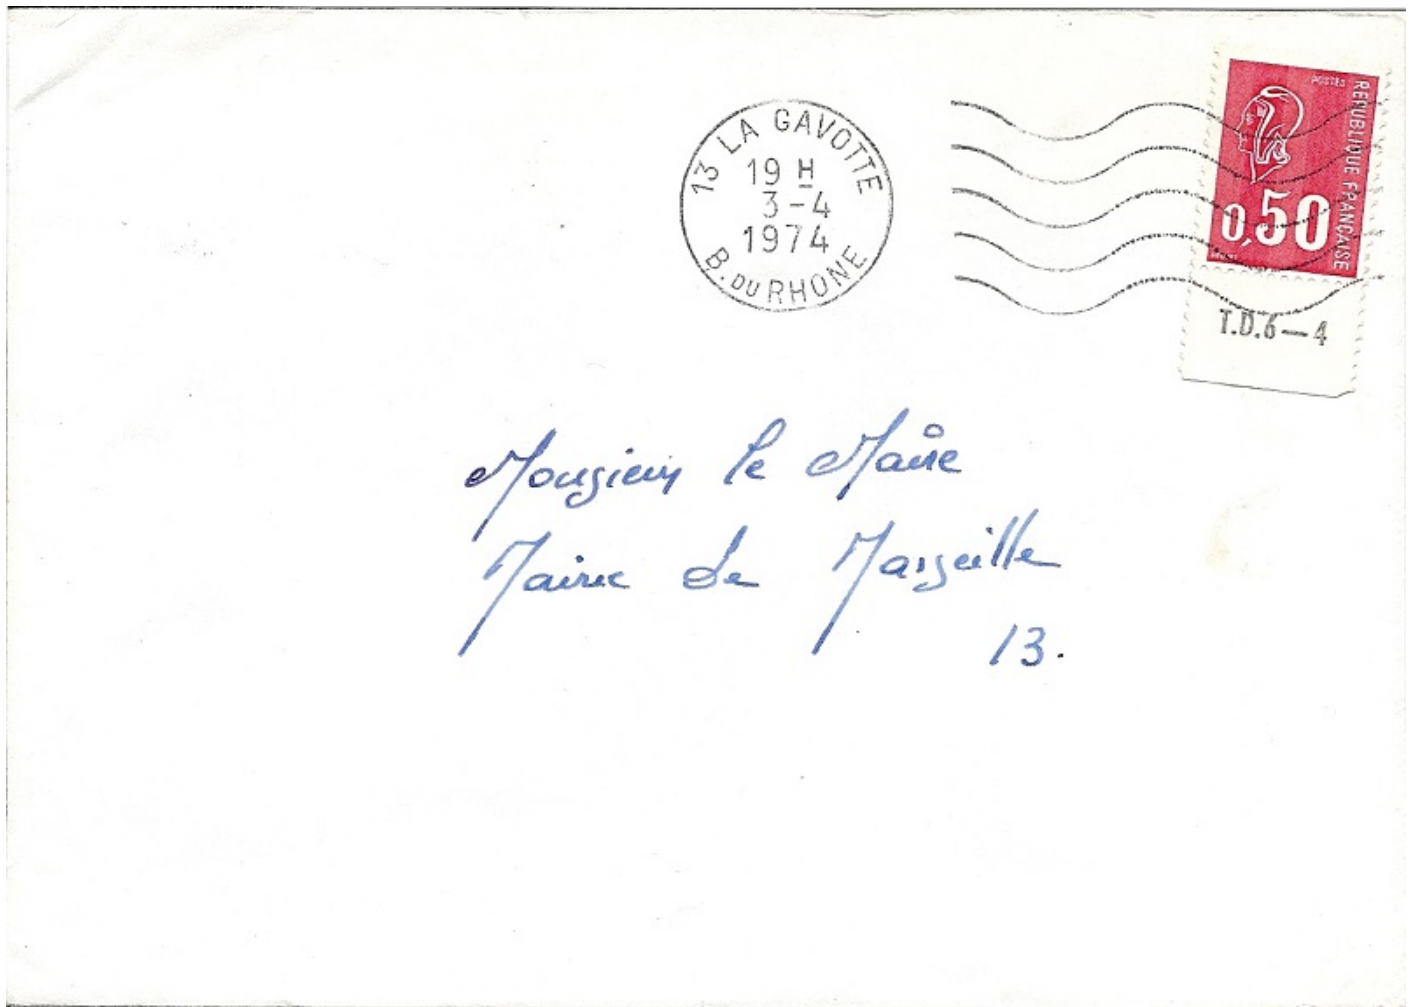 13 LA GAVOTTE
19 H
3-4
1974
B. DU RHONE
POSTES
REPUBLIQUE FRANÇAISE
0,50
T.D.6—4
Monsieur le Maire
Mairie de Marseille
13.